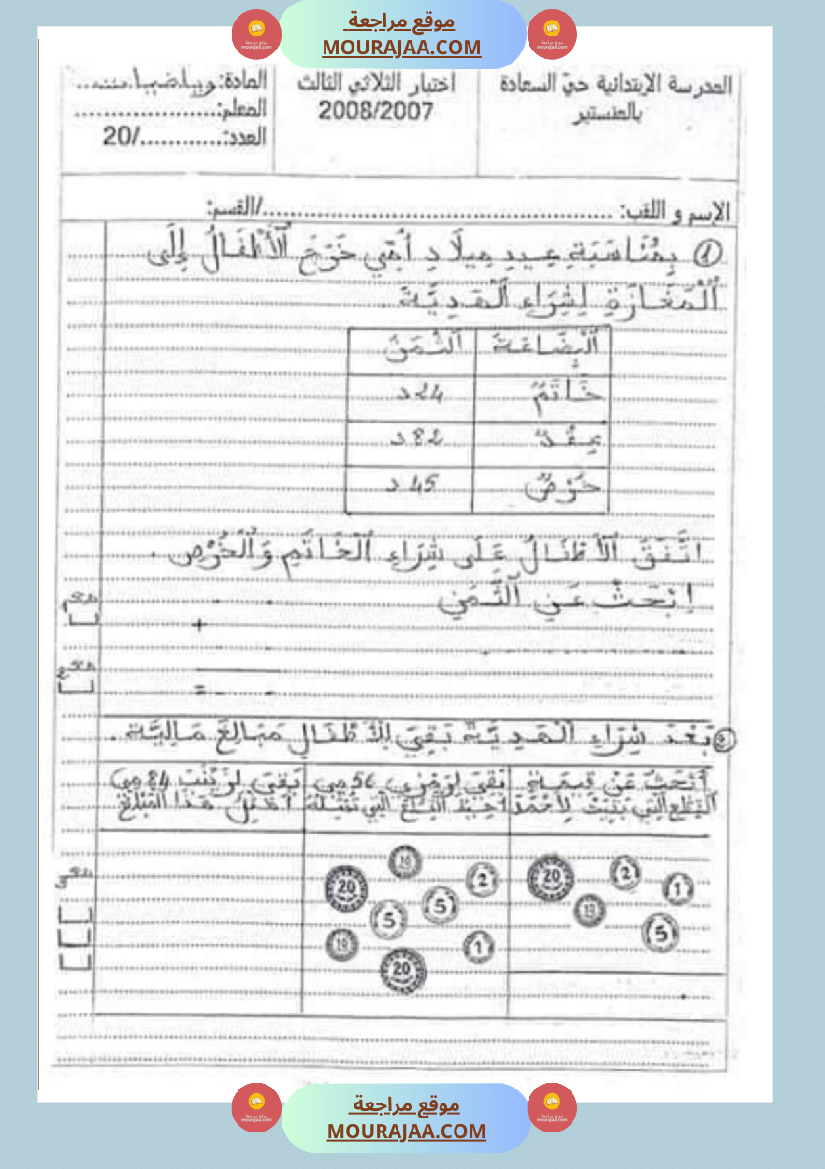 موقع مراجعة
MOURAJAA.COM
المدرسة الإبتدائية حيّ السعادة
بالمنستير
اختبار الثلاثي الثالث
2008/2007
المادة: رياضيات
المعلم:....................
العدد:............/20
الإسم و اللقب: ..................................................../القسم:
1 بِمُنَاسَبَةِ عِيدِ مِيلَادِ أُمِّي خَرَجَ الْأَطْفَالُ إِلَى
الْمَغَازَةِ لِشِرَاءِ الْهَدِيَّةِ
الْبِضَاعَةُ الثَّمَنُ
خَاتَمٌ 24 د
عِقْدٌ 82 د
خُرْصٌ 45 د
اتَّفَقَ الْأَطْفَالُ عَلَى شِرَاءِ الْخَاتَمِ وَالْخُرْصِ .
اِبْحَثْ عَنِ الثَّمَنِ
+
=
2 بَعْدَ شِرَاءِ الْهَدِيَّةِ بَقِيَ لِلْأَطْفَالِ مَبَالِغَ مَالِيَّة .
أَبْحَثُ عَنْ قِيمَةِ
الْقِطَعِ الَّتِي بَقِيَتْ لِأَحْمَدَ
20 2 1 10 5
بَقِيَ لِرَمْزِي 56 مي
أُحِيطُ الْمَبْلَغَ الَّذِي تُمَثِّلُهُ
10 20 2 5 5 10 1 20
بَقِيَ لِزَيْنَبَ 84 مي
أُمَثِّلُ هَذَا الْمَبْلَغَ
موقع مراجعة
MOURAJAA.COM